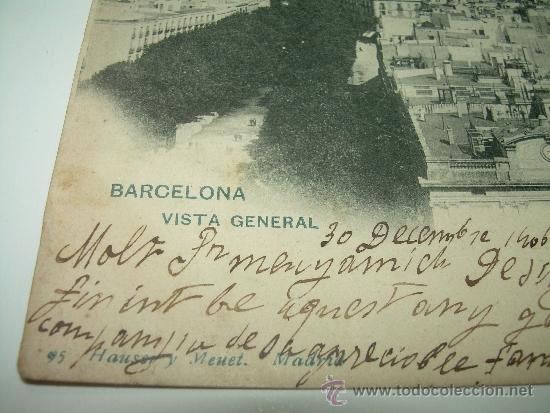 BARCELONA
VISTA GENERAL
30 Decembre 1906
Molt Sr meu y amich De
finint be aquest any
compañia de sa apreciable fam
95 Hauser y Menet. Madrid
todocoleccion.net